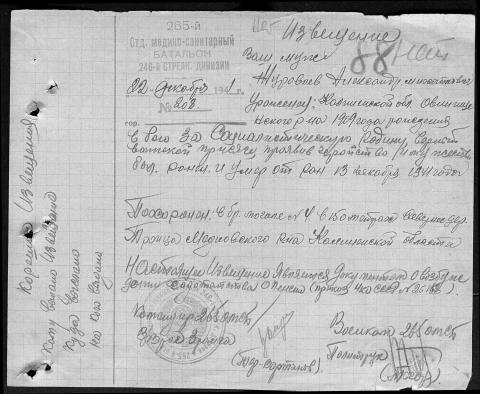 265-й
Отд. медико-санитарный
БАТАЛЬОН
246-й СТРЕЛК. ДИВИЗИИ
22 декабря 1941 г.
№ 203
гор.
Извещение
88
Ваш муж
Александр
Уроженец: Калининской обл.
1909 года рождения
В бою за Социалистическую Родину, верный
воинской присяге проявив геройство и мужество
был ранен и умер от ран 13 декабря 1941 года
Похоронен в бр. могиле № 4 в 150 метрах севернее дер.
Троица Медновского р-на Калининской области
Настоящее Извещение является документом о возбуж-
дении ходатайства о пенсии (приказ НКО СССР №
Командир 265 отд.
Военком 265 отд.
Политрук
Корешок Извещения
Кому выслано Извещение
Куда выслано